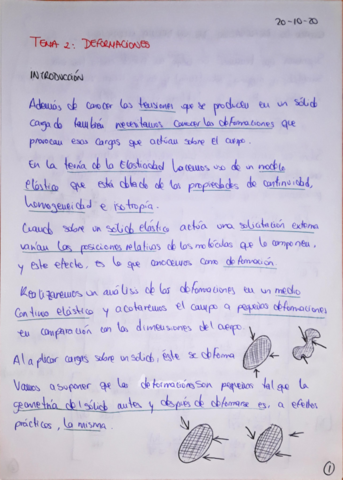 20-10-20
TEMA 2: DEFORMACIONES
INTRODUCCIÓN
Además de conocer las tensiones que se producen en un sólido
cargado también necesitamos conocer las deformaciones que
provocan esas cargas que actúan sobre el cuerpo.
En la teoría de la elasticidad hacemos uso de un modelo
elástico que está dotado de las propiedades de continuidad,
homogeneidad e isotropía.
Cuando sobre un sólido elástico actúa una solicitación externa
varían las posiciones relativas de las moléculas que lo componen,
y este efecto, es lo que conocemos como deformación.
Realizaremos un análisis de las deformaciones en un medio
continuo elástico y acotaremos el campo a pequeñas deformaciones
en comparación con las dimensiones del cuerpo.
Al aplicar cargas sobre un sólido, éste se deforma
Vamos a suponer que las deformaciones son pequeñas tal que la
geometría del sólido antes y después de deformarse es, a efectos
prácticos, la misma.
1